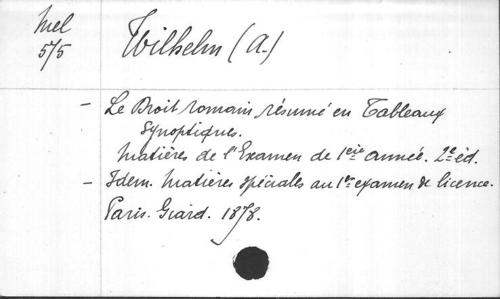 Mel
5/5
Wilhelm (A.)
- Le Droit romain résumé en Tableaux
Synoptiques.
Matières de l'Examen de 1ere année. 2e éd.
- Idem. Matières spéciales au 1er examen de licence.
Paris. Giard. 1878.